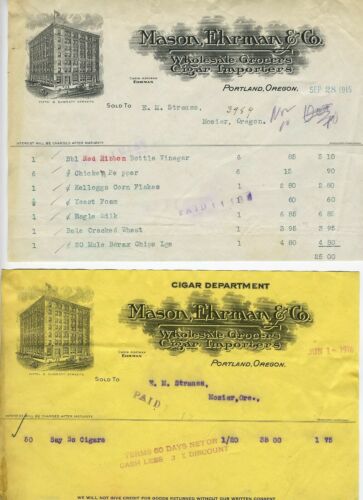 Mason, Ehrman & Co.
Wholesale Grocers
Cigar Importers
CABLE ADDRESS
EHRMAN
PORTLAND, OREGON. SEP 28 1915
FIFTH & EVERETT STREETS
SOLD TO E. M. Strauss,
Mosier, Oregon.
INTEREST WILL BE CHARGED AFTER MATURITY
1 Bbl Red Ribbon Bottle Vinegar 6 85 5 10
6 Chicken Pepper 6 15 90
1 Kelloggs Corn Flakes 1 2 80 2 80
Yeast Foam 1 60 60
1 Eagle Milk 1 6 85 6 85
1 Bale Cracked Wheat 1 3 95 3 95
1 20 Mule Borax Chips Lge 1 4 80 4 80
25 00
PAID
CIGAR DEPARTMENT
Mason, Ehrman & Co.
Wholesale Grocers
Cigar Importers
CABLE ADDRESS
EHRMAN
PORTLAND, OREGON.
JUN 1 - 1916
FIFTH & EVERETT STREETS
SOLD TO
E. M. Strauss,
Mosier, Ore.,
PAID
INTEREST WILL BE CHARGED AFTER MATURITY
50 Say So Cigars 1/20 35 00 1 75
TERMS 60 DAYS NET OR
CASH LESS 3 % DISCOUNT
WE WILL NOT GIVE CREDIT FOR GOODS RETURNED WITHOUT OUR WRITTEN CONSENT